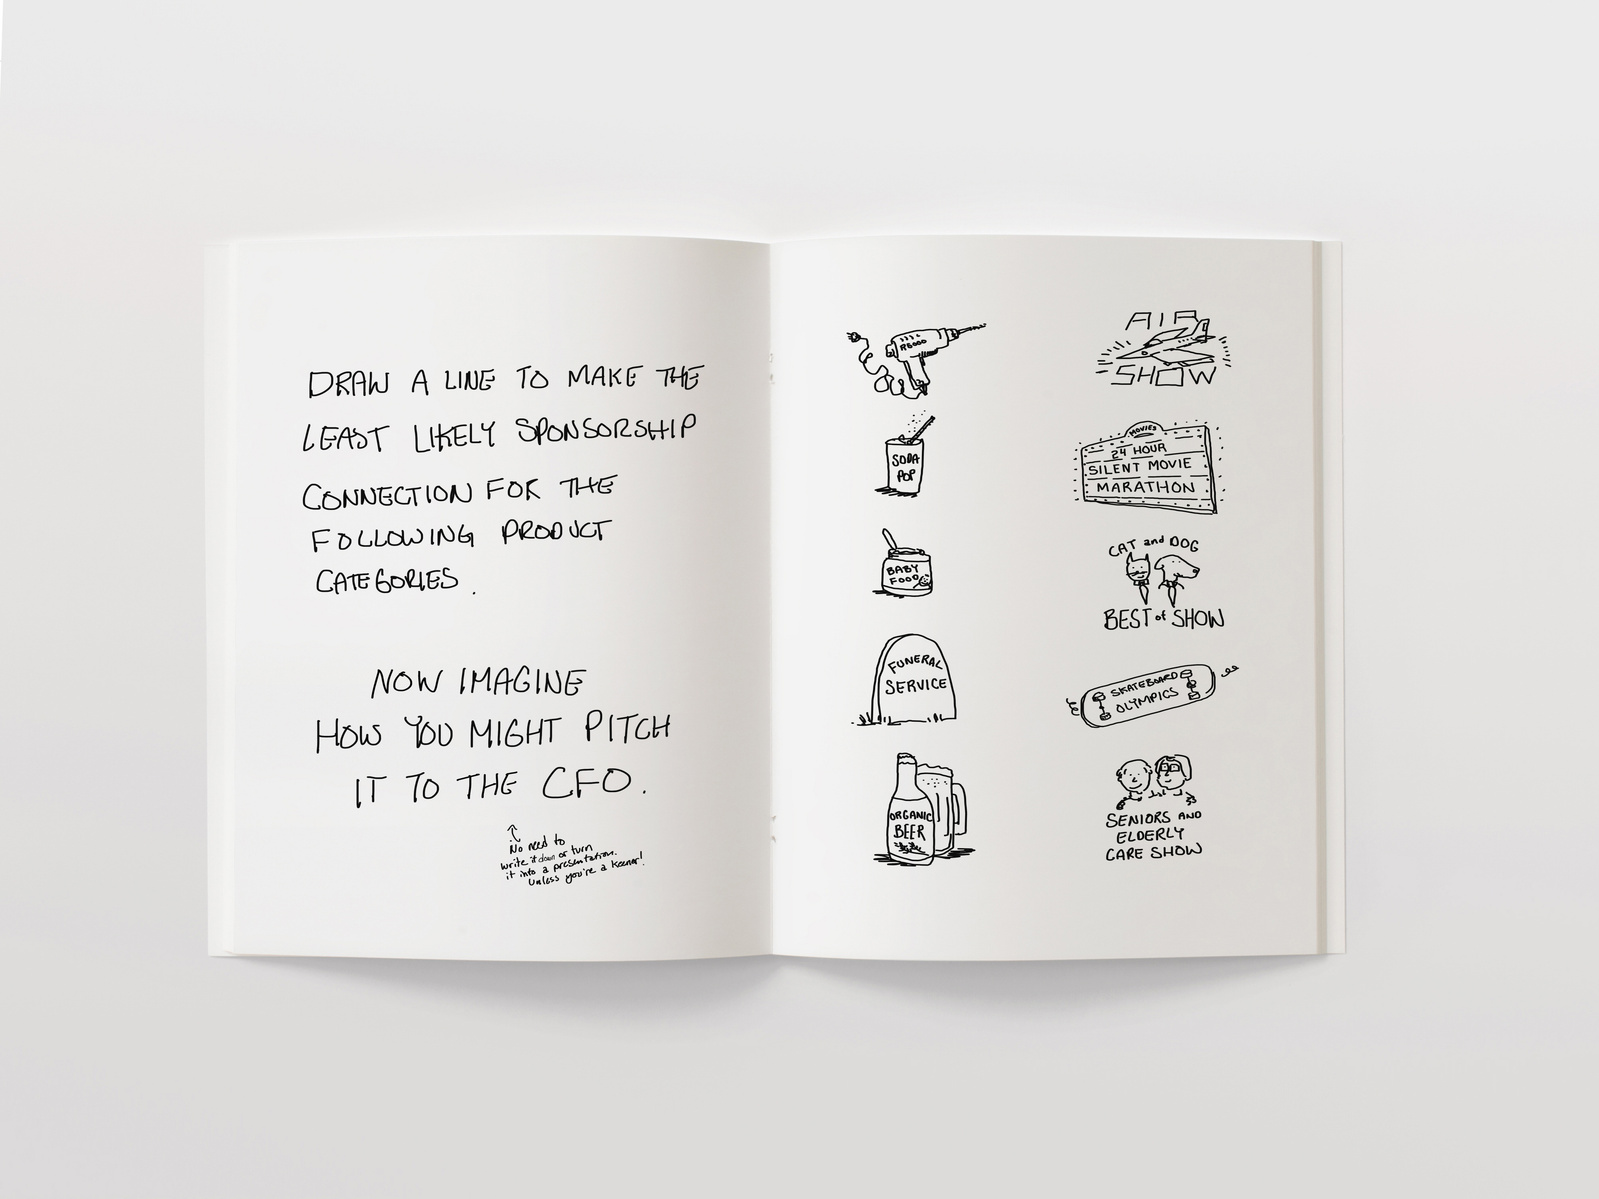 DRAW A LINE TO MAKE THE
LEAST LIKELY SPONSORSHIP
CONNECTION FOR THE
FOLLOWING PRODUCT
CATEGORIES.
NOW IMAGINE
HOW YOU MIGHT PITCH
IT TO THE CFO.
No need to
write it down or turn
it into a presentation.
Unless you're a keener!
R5000
SODA
POP
BABY
FOOD
FUNERAL
SERVICE
ORGANIC
BEER
AIR
SHOW
MOVIES
24 HOUR
SILENT MOVIE
MARATHON
CAT and DOG
BEST of SHOW
SKATEBOARD
OLYMPICS
SENIORS AND
ELDERLY
CARE SHOW